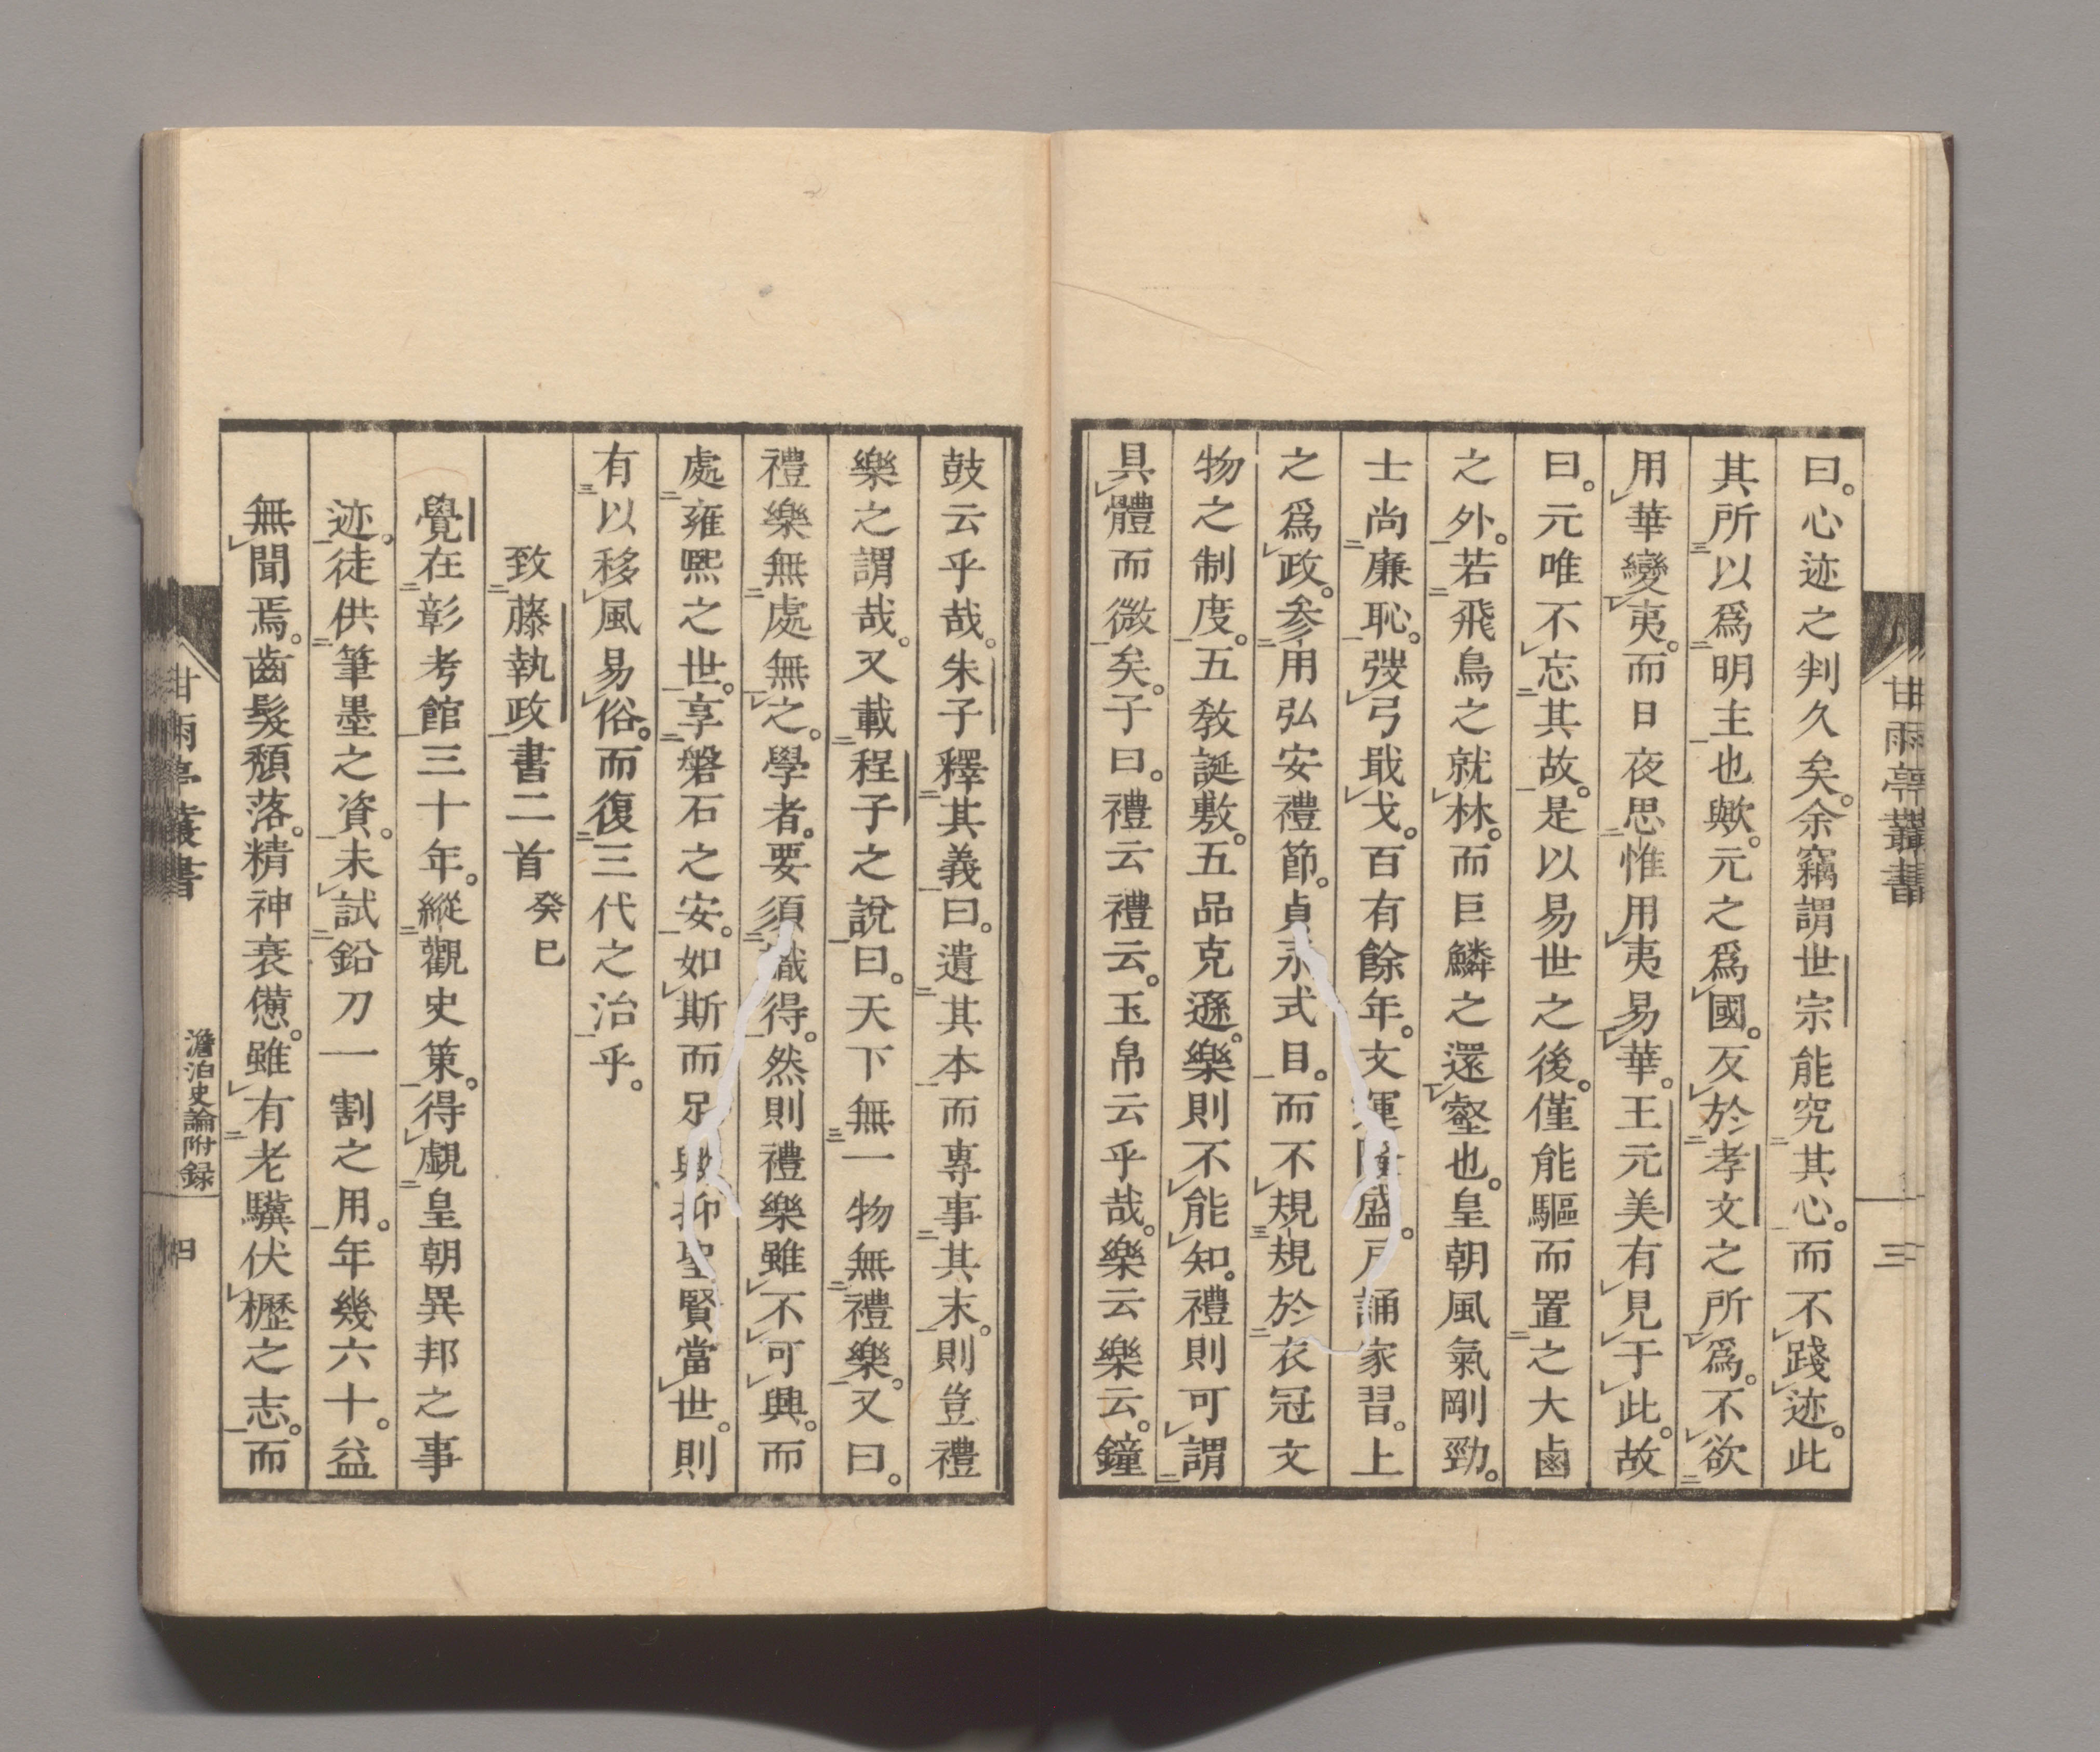 曰。心迹之判久矣。余竊謂世宗能究其心。而不踐迹。此
其所以爲明主也歟。元之爲國。反於孝文之所爲。不欲
用華變夷。而日夜思惟用夷易華。王元美有見于此。故
曰。元唯不忘其故。是以易世之後。僅能驅而置之大鹵
之外。若飛鳥之就林。而巨鱗之還壑也。皇朝風氣剛勁。
士尚廉恥。弢弓戢戈。百有餘年。文運隆盛。戶誦家習。上
之爲政。参用弘安禮節。貞永式目。而不規規於衣冠文
物之制度。五敎誕敷。五品克遜。樂則不能知。禮則可謂
具體而微矣。子曰。禮云禮云。玉帛云乎哉。樂云樂云。鐘
甘雨亭叢書
三
鼓云乎哉。朱子釋其義曰。遺其本而專事其末。則豈禮
樂之謂哉。又載程子之說曰。天下無一物無禮樂。又曰。
禮樂無處無之。學者。要須識得。然則禮樂雖不可興。而
處雍熙之世。享磐石之安。如斯而足歟。抑聖賢當世。則
有以移風易俗。而復三代之治乎。
致藤執政書二首 癸巳
覺在彰考館三十年。縱觀史策。得覷皇朝異邦之事
迹。徒供筆墨之資。未試鉛刀一割之用。年幾六十。益
無聞焉。齒髮頽落。精神衰憊。雖有老驥伏櫪之志。而
甘雨亭叢書
澹泊史論附録
四